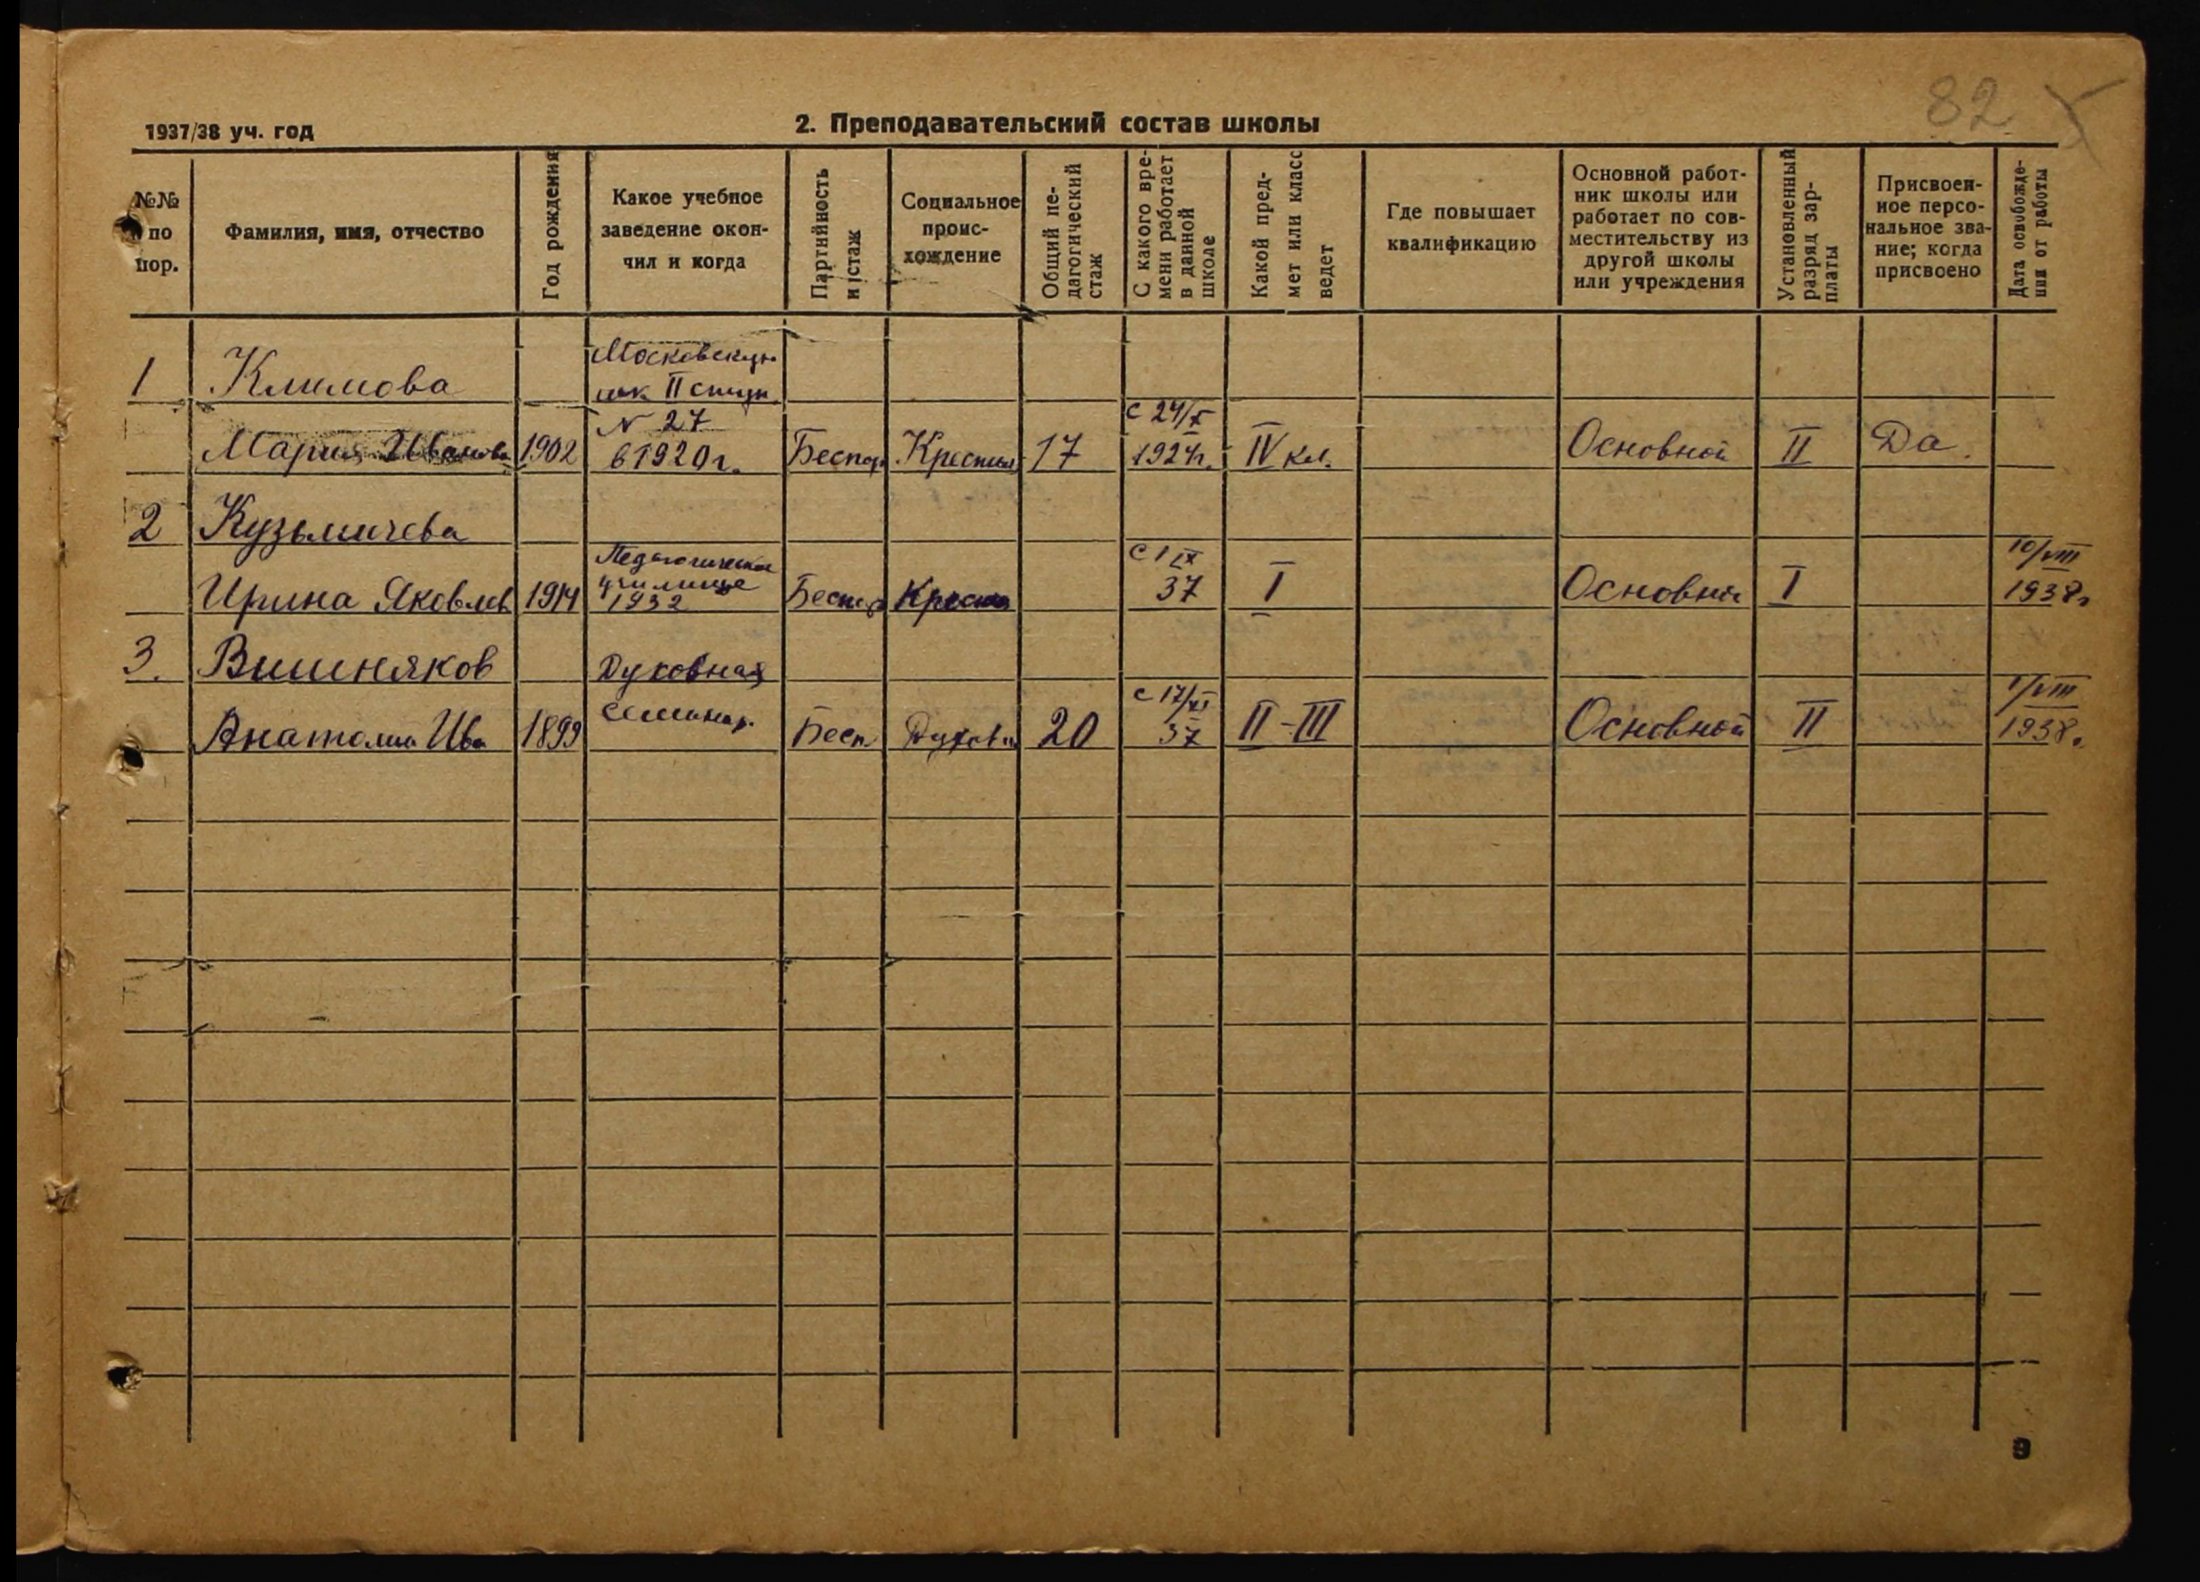 82
1937/38 уч. год
2. Преподавательский состав школы
№№
по
пор.
Фамилия, имя, отчество
Год рождения
Какое учебное
заведение окон-
чил и когда
Партийность
и стаж
Социальное
проис-
хождение
Общий пе-
дагогический
стаж
С какого вре-
мени работает
в данной
школе
Какой пред-
мет или класс
ведет
Где повышает
квалификацию
Основной работ-
ник школы или
работает по сов-
местительству из
другой школы
или учреждения
Установленный
разряд зар-
платы
Присвоен-
ное персо-
нальное зва-
ние; когда
присвоено
Дата освобожде-
ния от работы
1 Климова
Московскую
шк II ступ.
N 27
Мария Иванов 1902 в 1920 г. Беспар Крестьян 17
с 24/X
1924 г. IV кл. Основной II Да.
2 Кузьмичева
Педагогическое
училище
Ирина Яковлев 1914 1932 Беспар Крестьян
с 1 IX
37 I Основной I
10/VIII
1938 г
3. Вишняков Духовная
Анатолий Ива 1899 семинар. Бесп. Духовн 20
с 17/XI
37 II-III Основной II
1/VIII
1938.
9